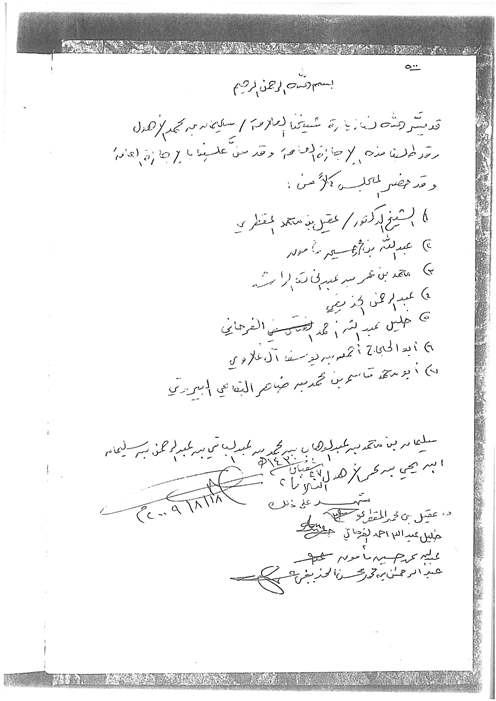 بسم الله الرحمن الرحيم
قد يسّر الله لنا زيارة شيخنا العلامة / سليمان بن محمد الأهدل
وقد طلبنا منه الإجازة العامة وقد منَّ علينا بالإجازة العامة
و قد حضر المجلس كلاً من :
١) الشيخ الدكتور / عقيل بن محمد المقطري
٢) عبدالله بن حسين مأمون
٣) محمد بن عمر بن عبدالله الراشد
٤) عبد الرحمن الحذيفي
٥) خليل عبد الله أحمد الفرحاني
٦) أبو الحجاج أحمد بن يوسف آل علاوي
٧) أبو محمد قاسم بن محمد بن ضاهر البقاعي البيروتي
سليمان بن محمد بن عبدالوهاب بن محمد بن عبدالباقي بن عبدالرحمن بن سليمان
ابن يحيى بن عمر الأهدل
شعبان ١٤٣٠هـ
٢٠٠٩/٨/١٨م
شهد على ذلك
د. عقيل بن محمد المقطري
خليل عبدالله احمد الفرحاني
عبدالله حسين مأمون
عبدالرحمن بن محمد محسن الحذيفي